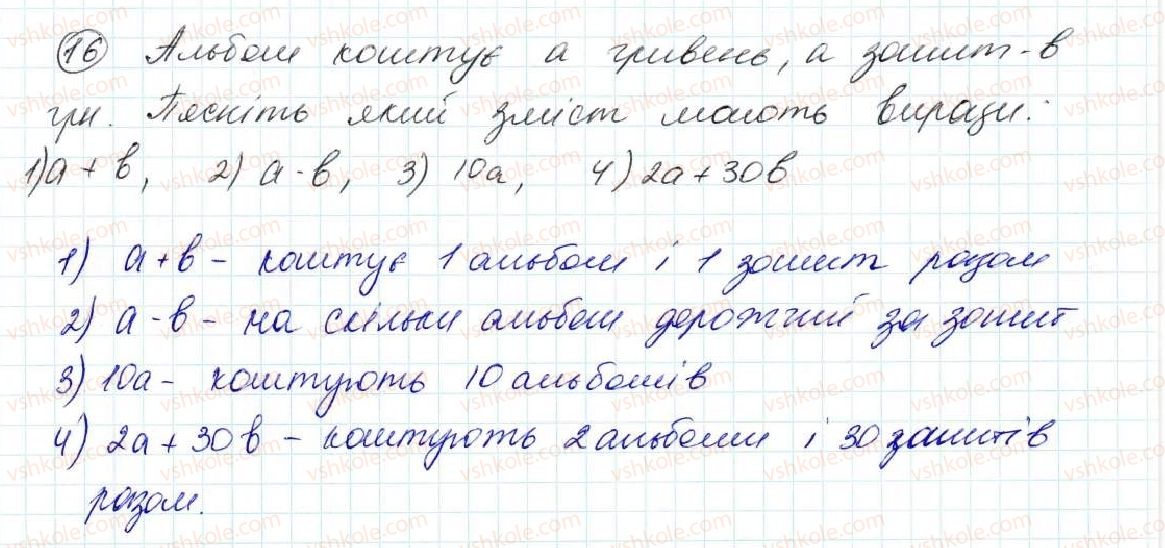 16 Альбом коштує а гривень, а зошит - в
грн. Поясніть який зміст мають вирази:
1) а + в, 2) а - в, 3) 10а, 4) 2а + 30в
1) а + в - коштує 1 альбом і 1 зошит разом
2) а - в - на скільки альбом дорожчий за зошит
3) 10а - коштують 10 альбомів
4) 2а + 30в - коштують 2 альбоми і 30 зошитів
разом.